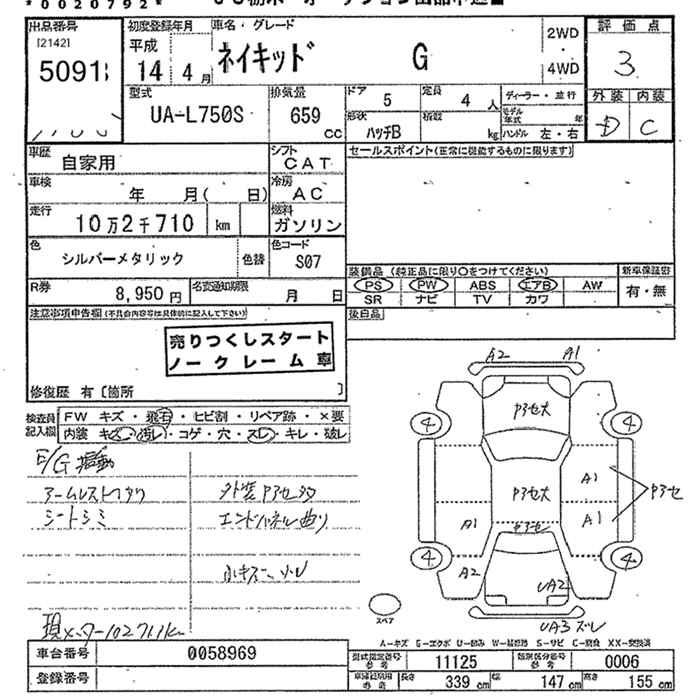 *0020792*
出品番号 初度登録年月 車名・グレード 2WD 評価点
[2142] 平成 ネイキッド G
5091 14 4月 4WD 3
型式 排気量 ドア 5 定員 4人 ディーラー・並行 外装 内装
UA-L750S 659 cc 形状 ハッチB 積載 kg モデル年式 年 D C
ハンドル 左・右
車歴 自家用 シフト CAT セールスポイント(正常に機能するものに限ります)
車検 年 月( 日) 冷房 AC
走行 10万2千710 km 燃料 ガソリン
色 シルバーメタリック 色替 色コード S07
装備品 (純正品に限り○をつけてください) 新車保証書
R券 8,950円 名変通知期限 月 日 PS PW ABS エアB AW 有・無
SR ナビ TV カワ
注意事項申告欄(不具合内容等は具体的に記入して下さい) 後日品
売りつくしスタート
ノークレーム車
修復歴 有〔箇所 〕
A2 A1
検査員記入欄 FW キズ・飛石・ヒビ割・リペア跡・×要
内装 キズ・汚レ・コゲ・穴・スレ・キレ・破レ
4 4
Pアセ大
E/G
アームレスト
シートシミ
外装Pアセ
エンドパネル曲り
小キズ
Pアセ大
A1 A1 A1 Pアセ
Pアセ
4 4
A2 UA2
スペア
UA3 ズレ
現メーター
A-キズ G-エクボ U-凹ミ W-補修跡 S-サビ C-腐食 XX-交換済
車台番号 0058969 型式指定番号 参考 11125 類別区分番号 参考 0006
登録番号 参考 長さ 339 cm 幅 147 cm 高さ 155 cm